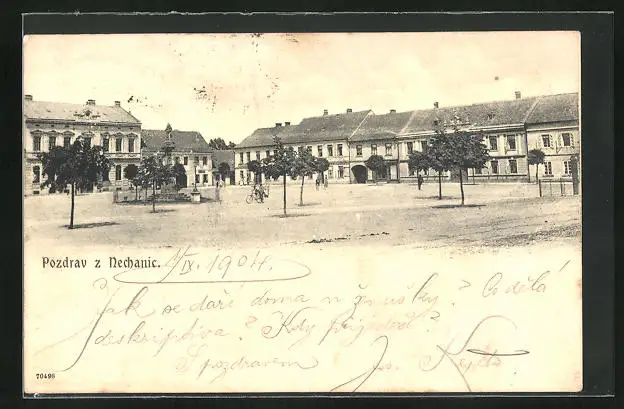 Pozdrav z Nechanic. 1/IX. 1904.
Jak se daří doma u? Co dělá
deskriptiva? Kdy přijedeš?
S pozdravem
70496